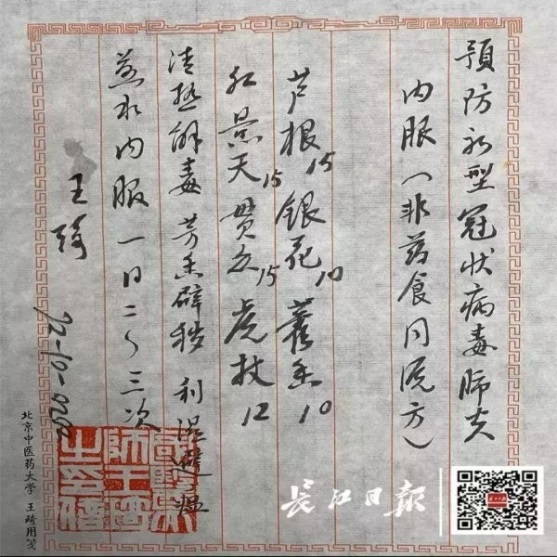 預防新型冠状病毒肺炎
内服(非药食同源方)
芦根15 銀花10 藿香10
红景天15 贯众15 虎杖12
清热解毒 芳香辟秽 利湿避瘟
煎水内服一日二~三次
王琦
2020-01-26
國醫大
師王琦
之處方
北京中医药大学 王琦用笺
长江日報